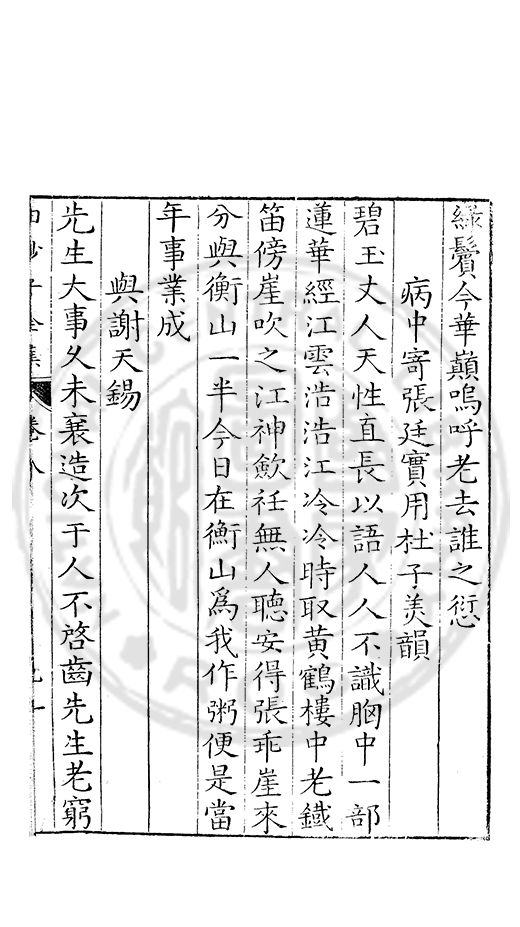 綠鬢今華巔嗚呼老去誰之愆
病中寄張廷實用杜子美韻
碧玉丈人天性直長以語人人不識胸中一部
蓮華經江雲浩浩江冷冷時取黄鶴樓中老鐵
笛傍崖吹之江神歛衽無人聽安得張乖崖來
分與衡山一半今日在衡山爲我作粥便是當
年事業成
與謝天錫
先生大事久未襄造次于人不啓齒先生老窮